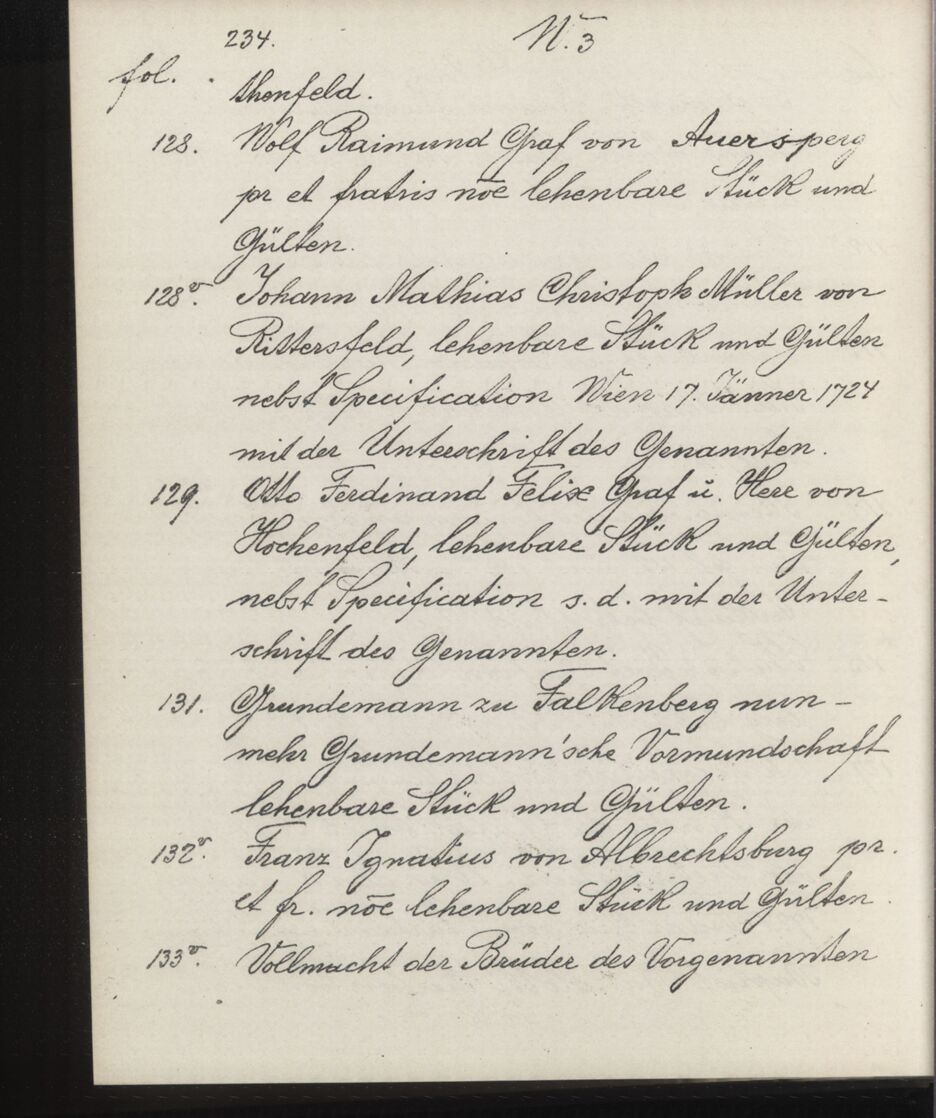 234. N. 3
fol. thenfeld.
128. Wolf Raimund Graf von Auersperg
pr et fratris nōe lehenbare Stück und
Gülten.
128v. Johann Mathias Christoph Müller von
Rittersfeld, lehenbare Stück und Gülten
nebst Specification Wien 17. Jänner 1724
mit der Unterschrift des Genannten.
129. Otto Ferdinand Felix Graf u. Herr von
Hochenfeld, lehenbare Stück und Gülten,
nebst Specification s. d. mit der Unter-
schrift des Genannten.
131. Grundemann zu Falkenberg nun-
mehr Grundemann'sche Vormundschaft
lehenbare Stück und Gülten.
132v. Franz Ignatius von Albrechtsburg pr.
et fr. nōe lehenbare Stück und Gülten.
133v. Vollmacht der Brüder des Vorgenannten